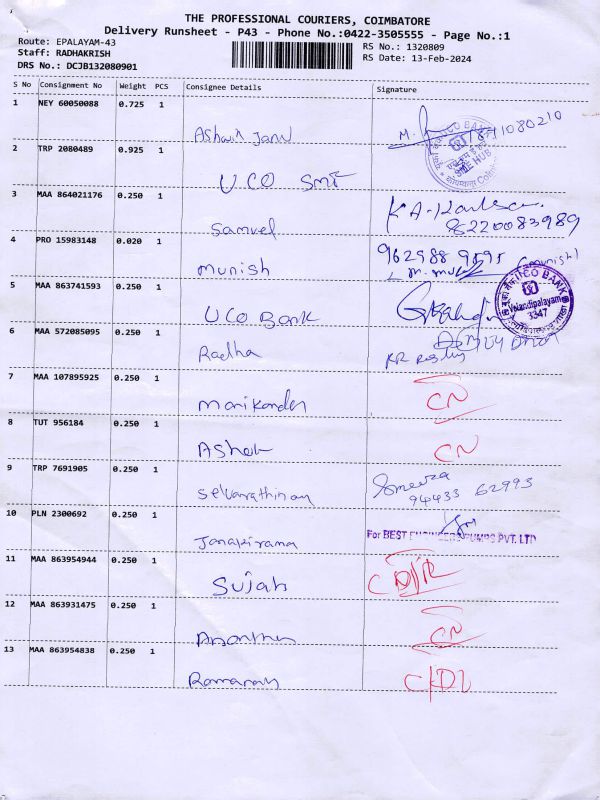 THE PROFESSIONAL COURIERS, COIMBATORE
Delivery Runsheet - P43 - Phone No.:0422-3505555 - Page No.:1
Route: EPALAYAM-43
RS No.: 1320809
Staff: RADHAKRISH
RS Date: 13-Feb-2024
DRS No.: DCJB132080901
S No Consignment No Weight PCS Consignee Details Signature
1 NEY 60050088 0.725 1
2 TRP 2080489 0.925 1
UCO
3 MAA 864021176 0.250 1
Samuel 8220083989
4 PRO 15983148 0.020 1
Munish
5 MAA 863741593 0.250 1
UCO Bank
UCO BANK
Velandipalayam
3347
6 MAA 572085095 0.250 1
Radha
7 MAA 107895925 0.250 1
Manikanden CN
8 TUT 956184 0.250 1
Ashok CN
9 TRP 7691905 0.250 1
94433 62993
10 PLN 2300692 0.250 1
Janakirama For BEST ENGINEERS PUMPS PVT. LTD
11 MAA 863954944 0.250 1
Sujah
12 MAA 863931475 0.250 1
CN
13 MAA 863954838 0.250 1